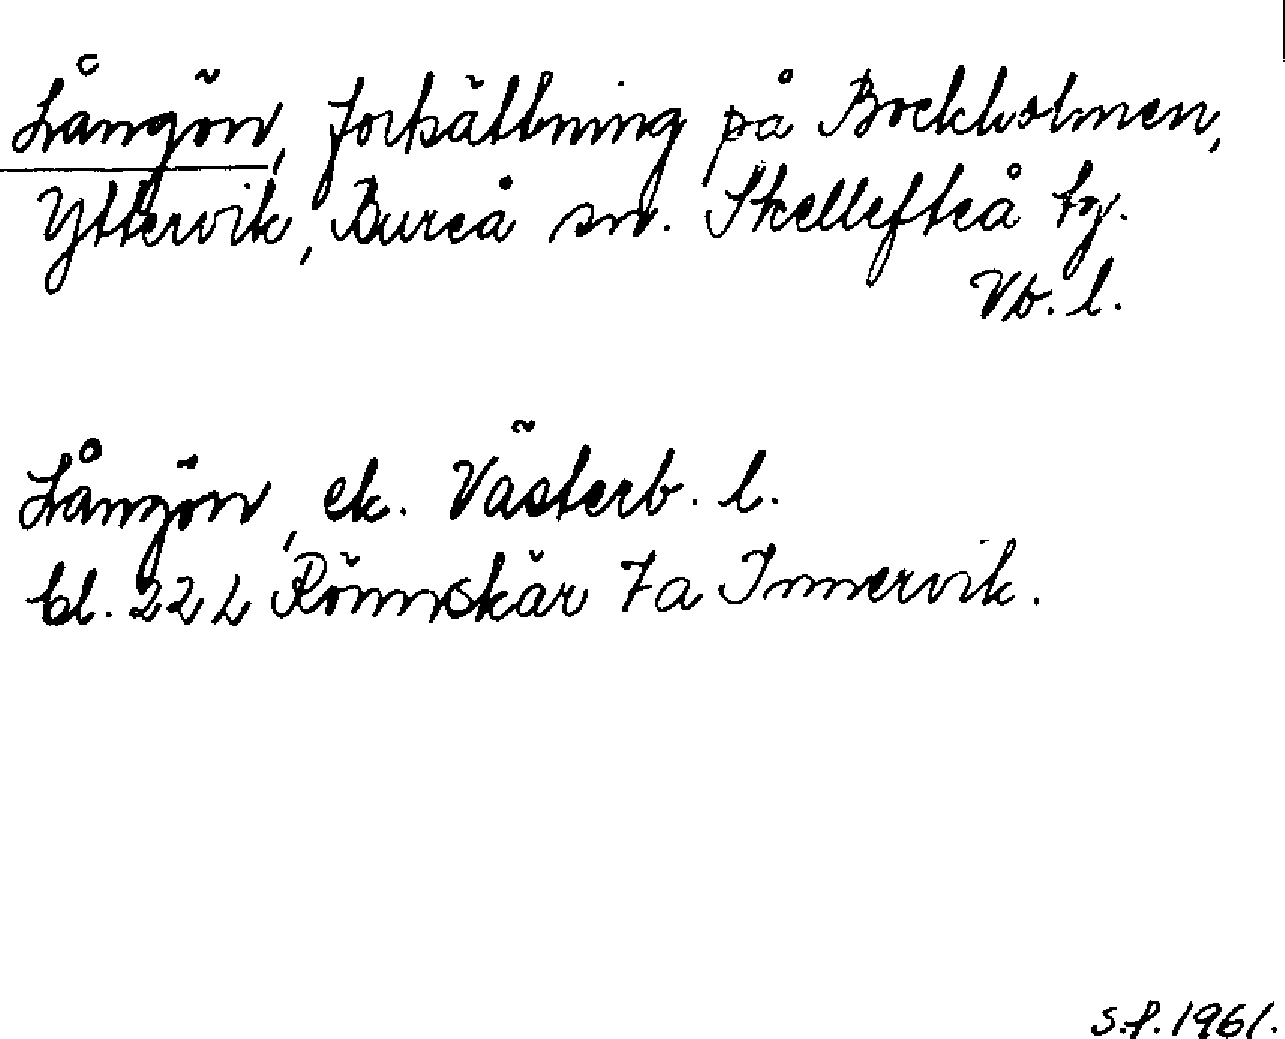 Långön, fortsättning på Bockholmen,
Yttervik, Bureå sn. Skellefteå tg.
Vb. l.
Långön, ek. Västerb. l.
bl. 22 L Rönnskär 7a Innervik.
S.f. 1961.